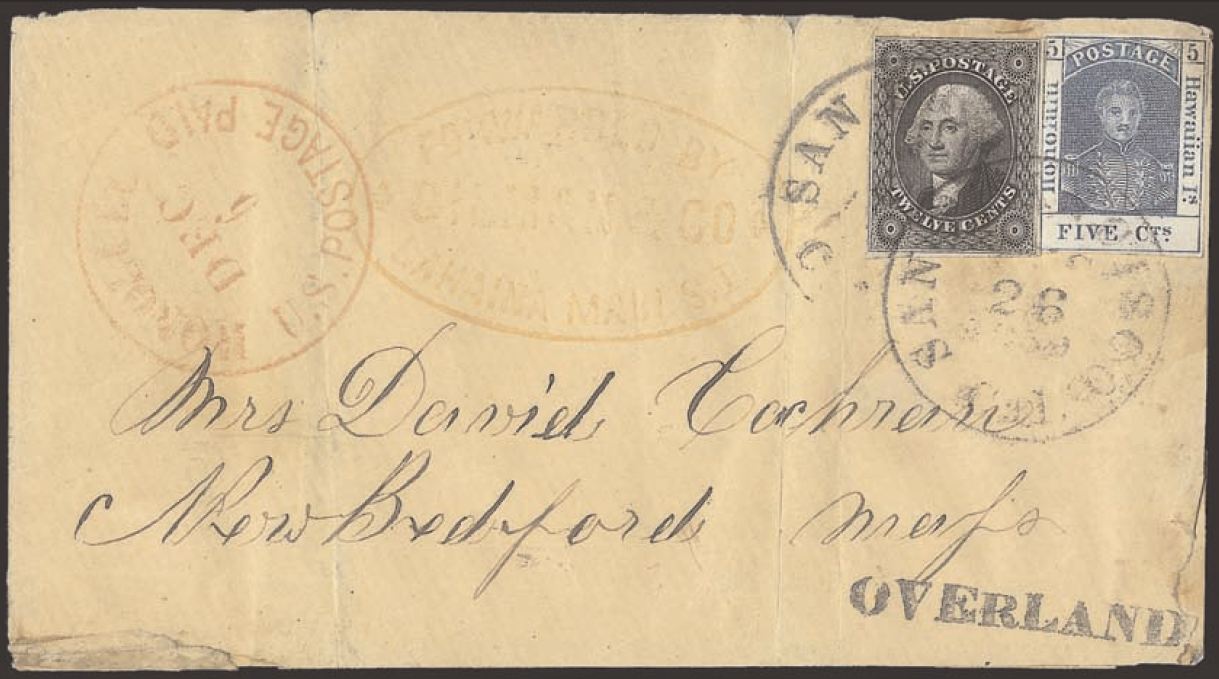 U.S. POSTAGE
TWELVE CENTS
5 POSTAGE 5
Honolulu
Hawaiian Is.
FIVE Cts
HONOLULU
U.S. POSTAGE PAID
DEC
BY
& CO
LAHAINA MAUI S.I.
SAN
SAN
26
Mrs David Cochran
New Bedford Mass
OVERLAND